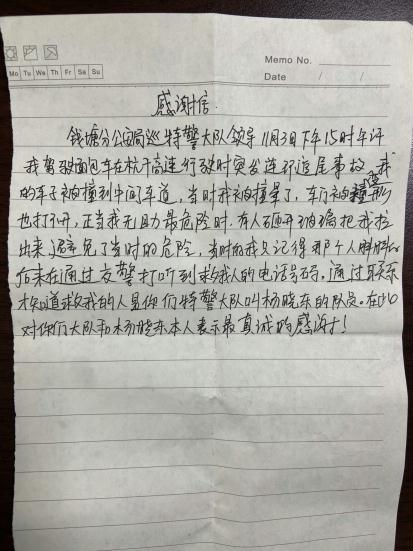 Memo No.
Mo Tu We Th Fr Sa Su
Date / /
感谢信.
钱塘分公安局巡特警大队领导11月3日下午15时左右
我驾驶面包车在杭千高速行驶时突发连环追尾事故,我
的车子被撞到中间车道,当时我被撞晕了,车门被撞变形
也打不开,正当我无助最危险时.有人砸开玻璃把我拉
出来避免了当时的危险,当时我只记得那个人
后来在通过交警打听到救我人的电话号码,通过联系
才知道救我的人是你们特警大队叫杨晓东的队员。在此
对你们大队和杨晓东本人表示最真诚的感谢!